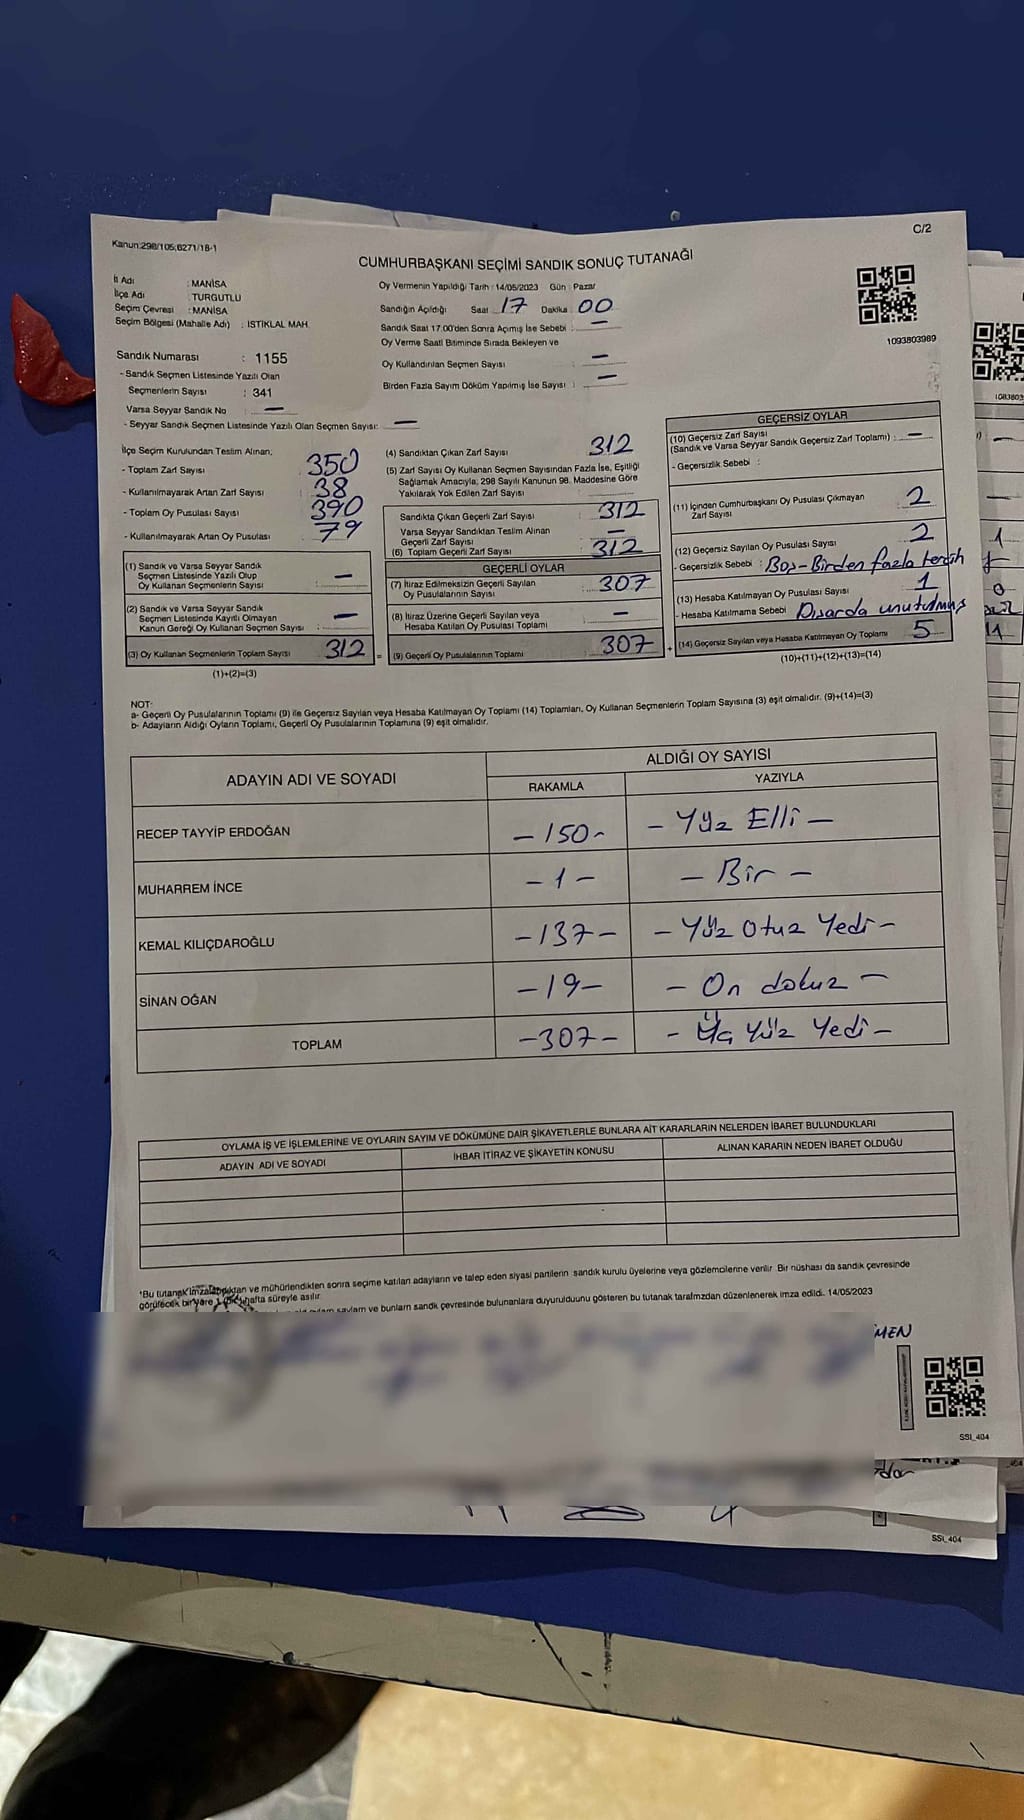 C/2
Kanun:298/105;6271/18-1
CUMHURBAŞKANI SEÇİMİ SANDIK SONUÇ TUTANAĞI
İl Adı : MANİSA
İlçe Adı : TURGUTLU
Seçim Çevresi : MANİSA
Seçim Bölgesi (Mahalle Adı) : ISTİKLAL MAH.
Oy Vermenin Yapıldığı Tarih : 14/05/2023 Gün : Pazar
Sandığın Açıldığı Saat 17 Dakika 00
Sandık Saat 17.00'den Sonra Açımış İse Sebebi : —
Oy Verme Saati Bitiminde Sırada Bekleyen ve
Oy Kullandırılan Seçmen Sayısı : —
Birden Fazla Sayım Döküm Yapılmış İse Sayısı : —
1093803989
Sandık Numarası : 1155
- Sandık Seçmen Listesinde Yazılı Olan
Seçmenlerin Sayısı : 341
Varsa Seyyar Sandık No : —
- Seyyar Sandık Seçmen Listesinde Yazılı Olan Seçmen Sayısı: —
İlçe Seçim Kurulundan Teslim Alınan;
- Toplam Zarf Sayısı 350
- Kullanılmayarak Artan Zarf Sayısı 38
- Toplam Oy Pusulası Sayısı 390
- Kullanılmayarak Artan Oy Pusulası 79
(1) Sandık ve Varsa Seyyar Sandık
Seçmen Listesinde Yazılı Olup
Oy Kullanan Seçmenlerin Sayısı : —
(2) Sandık ve Varsa Seyyar Sandık
Seçmen Listesinde Kayıtlı Olmayan
Kanun Gereği Oy Kullanan Seçmen Sayısı : —
(3) Oy Kullanan Seçmenlerin Toplam Sayısı 312 =
(1)+(2)=(3)
(4) Sandıktan Çıkan Zarf Sayısı 312
(5) Zarf Sayısı Oy Kullanan Seçmen Sayısından Fazla İse, Eşitliği
Sağlamak Amacıyla; 298 Sayılı Kanunun 98. Maddesine Göre
Yakılarak Yok Edilen Zarf Sayısı :
Sandıkta Çıkan Geçerli Zarf Sayısı : 312
Varsa Seyyar Sandıktan Teslim Alınan
Geçerli Zarf Sayısı : —
(6) Toplam Geçerli Zarf Sayısı : 312
GEÇERLİ OYLAR
(7) İtiraz Edilmeksizin Geçerli Sayılan
Oy Pusulalarının Sayısı : 307
(8) İtiraz Üzerine Geçerli Sayılan veya
Hesaba Katılan Oy Pusulası Toplamı : —
(9) Geçerli Oy Pusulalarının Toplamı 307 +
GEÇERSİZ OYLAR
(10) Geçersiz Zarf Sayısı
(Sandık ve Varsa Seyyar Sandık Geçersiz Zarf Toplamı) : —
- Geçersizlik Sebebi :
(11) İçinden Cumhurbaşkanı Oy Pusulası Çıkmayan
Zarf Sayısı : 2
(12) Geçersiz Sayılan Oy Pusulası Sayısı : 2
- Geçersizlik Sebebi : Boş-Birden fazla tercih
(13) Hesaba Katılmayan Oy Pusulası Sayısı : 1
- Hesaba Katılmama Sebebi Dısarda unutulmuş
(14) Geçersiz Sayılan veya Hesaba Katılmayan Oy Toplamı 5
(10)+(11)+(12)+(13)=(14)
NOT:
a- Geçerli Oy Pusulalarının Toplamı (9) ile Geçersiz Sayılan veya Hesaba Katılmayan Oy Toplamı (14) Toplamları, Oy Kullanan Seçmenlerin Toplam Sayısına (3) eşit olmalıdır. (9)+(14)=(3)
b- Adayların Aldığı Oyların Toplamı, Geçerli Oy Pusulalarının Toplamına (9) eşit olmalıdır.
ADAYIN ADI VE SOYADI
ALDIĞI OY SAYISI
RAKAMLA YAZIYLA
RECEP TAYYİP ERDOĞAN -150- - Yüz Elli -
MUHARREM İNCE -1- - Bir -
KEMAL KILIÇDAROĞLU -137- - Yüz Otuz Yedi -
SİNAN OĞAN -19- - On dokuz -
TOPLAM -307- - Üç Yüz Yedi -
OYLAMA İŞ VE İŞLEMLERİNE VE OYLARIN SAYIM VE DÖKÜMÜNE DAİR ŞİKAYETLERLE BUNLARA AİT KARARLARIN NELERDEN İBARET BULUNDUKLARI
ADAYIN ADI VE SOYADI İHBAR İTİRAZ VE ŞİKAYETİN KONUSU ALINAN KARARIN NEDEN İBARET OLDUĞU
*Bu tutanak imzalandıktan ve mühürlendikten sonra seçime katılan adayların ve talep eden siyasi partilerin sandık kurulu üyelerine veya gözlemcilerine verilir. Bir nüshası da sandık çevresinde
görülecek bir yere 1 hafta süreyle asılır.
sayım ve bunların sandık çevresinde bulunanlara duyurulduunu gösteren bu tutanak tarafımızdan düzenlenerek imza edildi. 14/05/2023
SSI_404
SSI_404